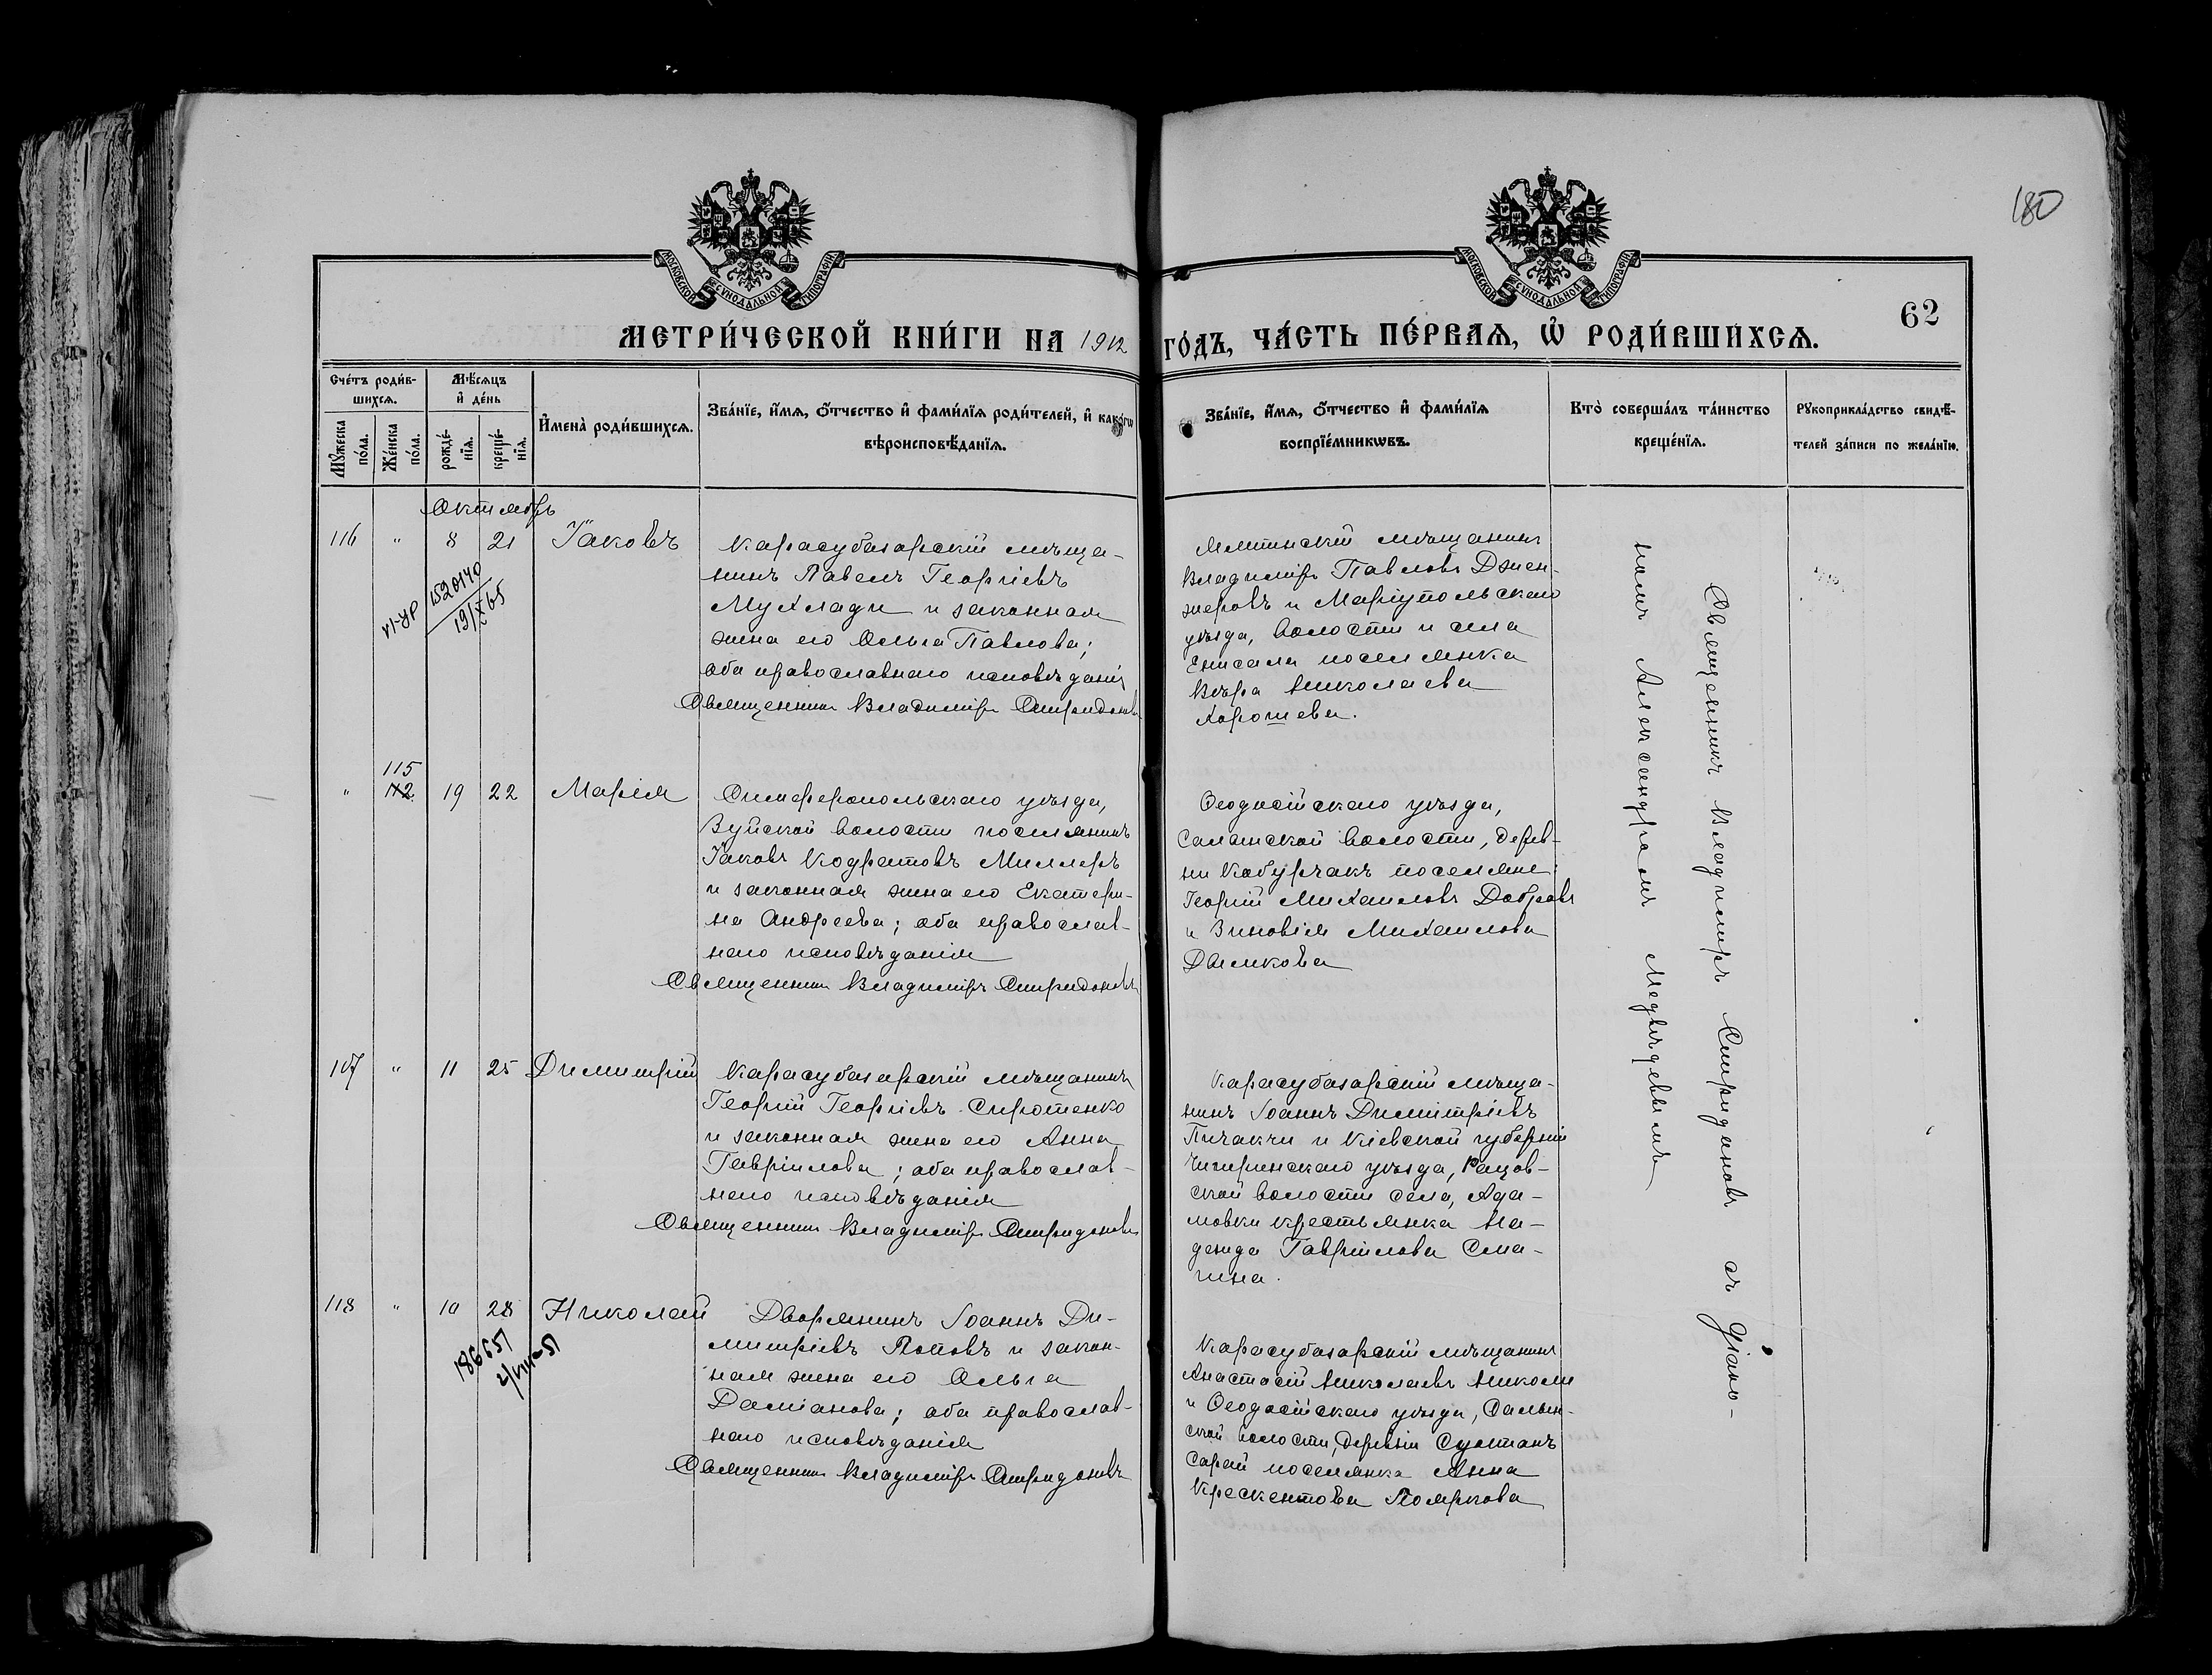 180
МОСКОВСКОЙ СУНОДАЛЬНОЙ ТИПОГРАФІИ
МОСКОВСКОЙ СУНОДАЛЬНОЙ ТИПОГРАФІИ
62
МЕТРИ́ЧЕСКОЙ КНИ́ГИ НА 1912 ГО́ДЪ, ЧА́СТЬ ПЕ́РВАѦ, Ѡ РОДИ́ВШИХСѦ.
Сче́тъ роди́в-
шихсѧ.
Мꙋ́жеска по́ла.
Же́нска по́ла.
Мѣ́сѧцъ
и҆ де́нь
рожде́-
нїѧ.
креще́-
нїѧ.
И҆мена̀ роди́вшихсѧ.
Зва́нїе, и҆́мѧ, ѻ҆́тчество и҆ фами́лїѧ роди́телей, и҆ како́гѡ
вѣроисповѣ́данїѧ.
Зва́нїе, и҆́мѧ, ѻ҆́тчество и҆ фами́лїѧ
воспрїе́мникѡвъ.
Кто̀ соверша́лъ та́инство
креще́нїѧ.
Рꙋкоприкла́дство свидѣ́-
телей за́писи по жела́нїю.
Октябрь
116 " 8 21 Іаковъ
1520140
19/X 65
Карасубазарскій мѣща-
нинъ Павелъ Георгіевъ
Мухлади и законная
жена его Ольга Павлова;
оба православнаго исповѣданія
Священникъ Владиміръ Спиридоновъ
Ялтинскій мѣщанинъ
Владиміръ Павловъ Джен-
жеровъ и Маріупольскаго
уѣзда, волости и села
Енисали поселянка
Вѣра Николаева
Хорошева.
115
" 112 19 22 Марія
Симферопольскаго уѣзда,
Зуйской волости поселянинъ
Іаковъ Кодратовъ Миллеръ
и законная жена его Екатери-
на Андреева; оба православ-
наго исповѣданія
Священникъ Владиміръ Спиридоновъ
Ѳеодосійскаго уѣзда,
Салынской волости, дерев-
ни Кабурчакъ поселяне:
Георгій Михаиловъ Добровъ
и Зиновія Михаилова
Дымкова
107 " 11 25 Димитрій
Карасубазарскій мѣщанинъ
Георгій Георгіевъ Сиротенко
и законная жена его Анна
Гавріилова; оба православ-
наго исповѣданія
Священникъ Владиміръ Спиридоновъ
Карасубазарскій мѣща-
нинъ Іоаннъ Димитріевъ
Пичакчи и Кіевской губерніи
Чигиринскаго уѣзда, Рацов-
ской волости села, Ада-
мовки крестьянка На-
дежда Гавріилова Сма-
гина.
118 " 10 28 Николай
186651
2/VIII-51
Дворянинъ Іоаннъ Ди-
митріевъ Поповъ и закон-
ная жена его Ольга
Даміанова; оба православ-
наго исповѣданія
Священникъ Владиміръ Спиридоновъ
Карасубазарскій мѣщанинъ
Анастасій Николаевъ Николи
и Ѳеодосійскаго уѣзда, Салын-
ской волости, деревни Султанъ
Сарай поселянка Анна
Крескентова Пояркова
Священникъ Владиміръ Спиридоновъ съ діако-
номъ Александромъ Медвѣдевымъ